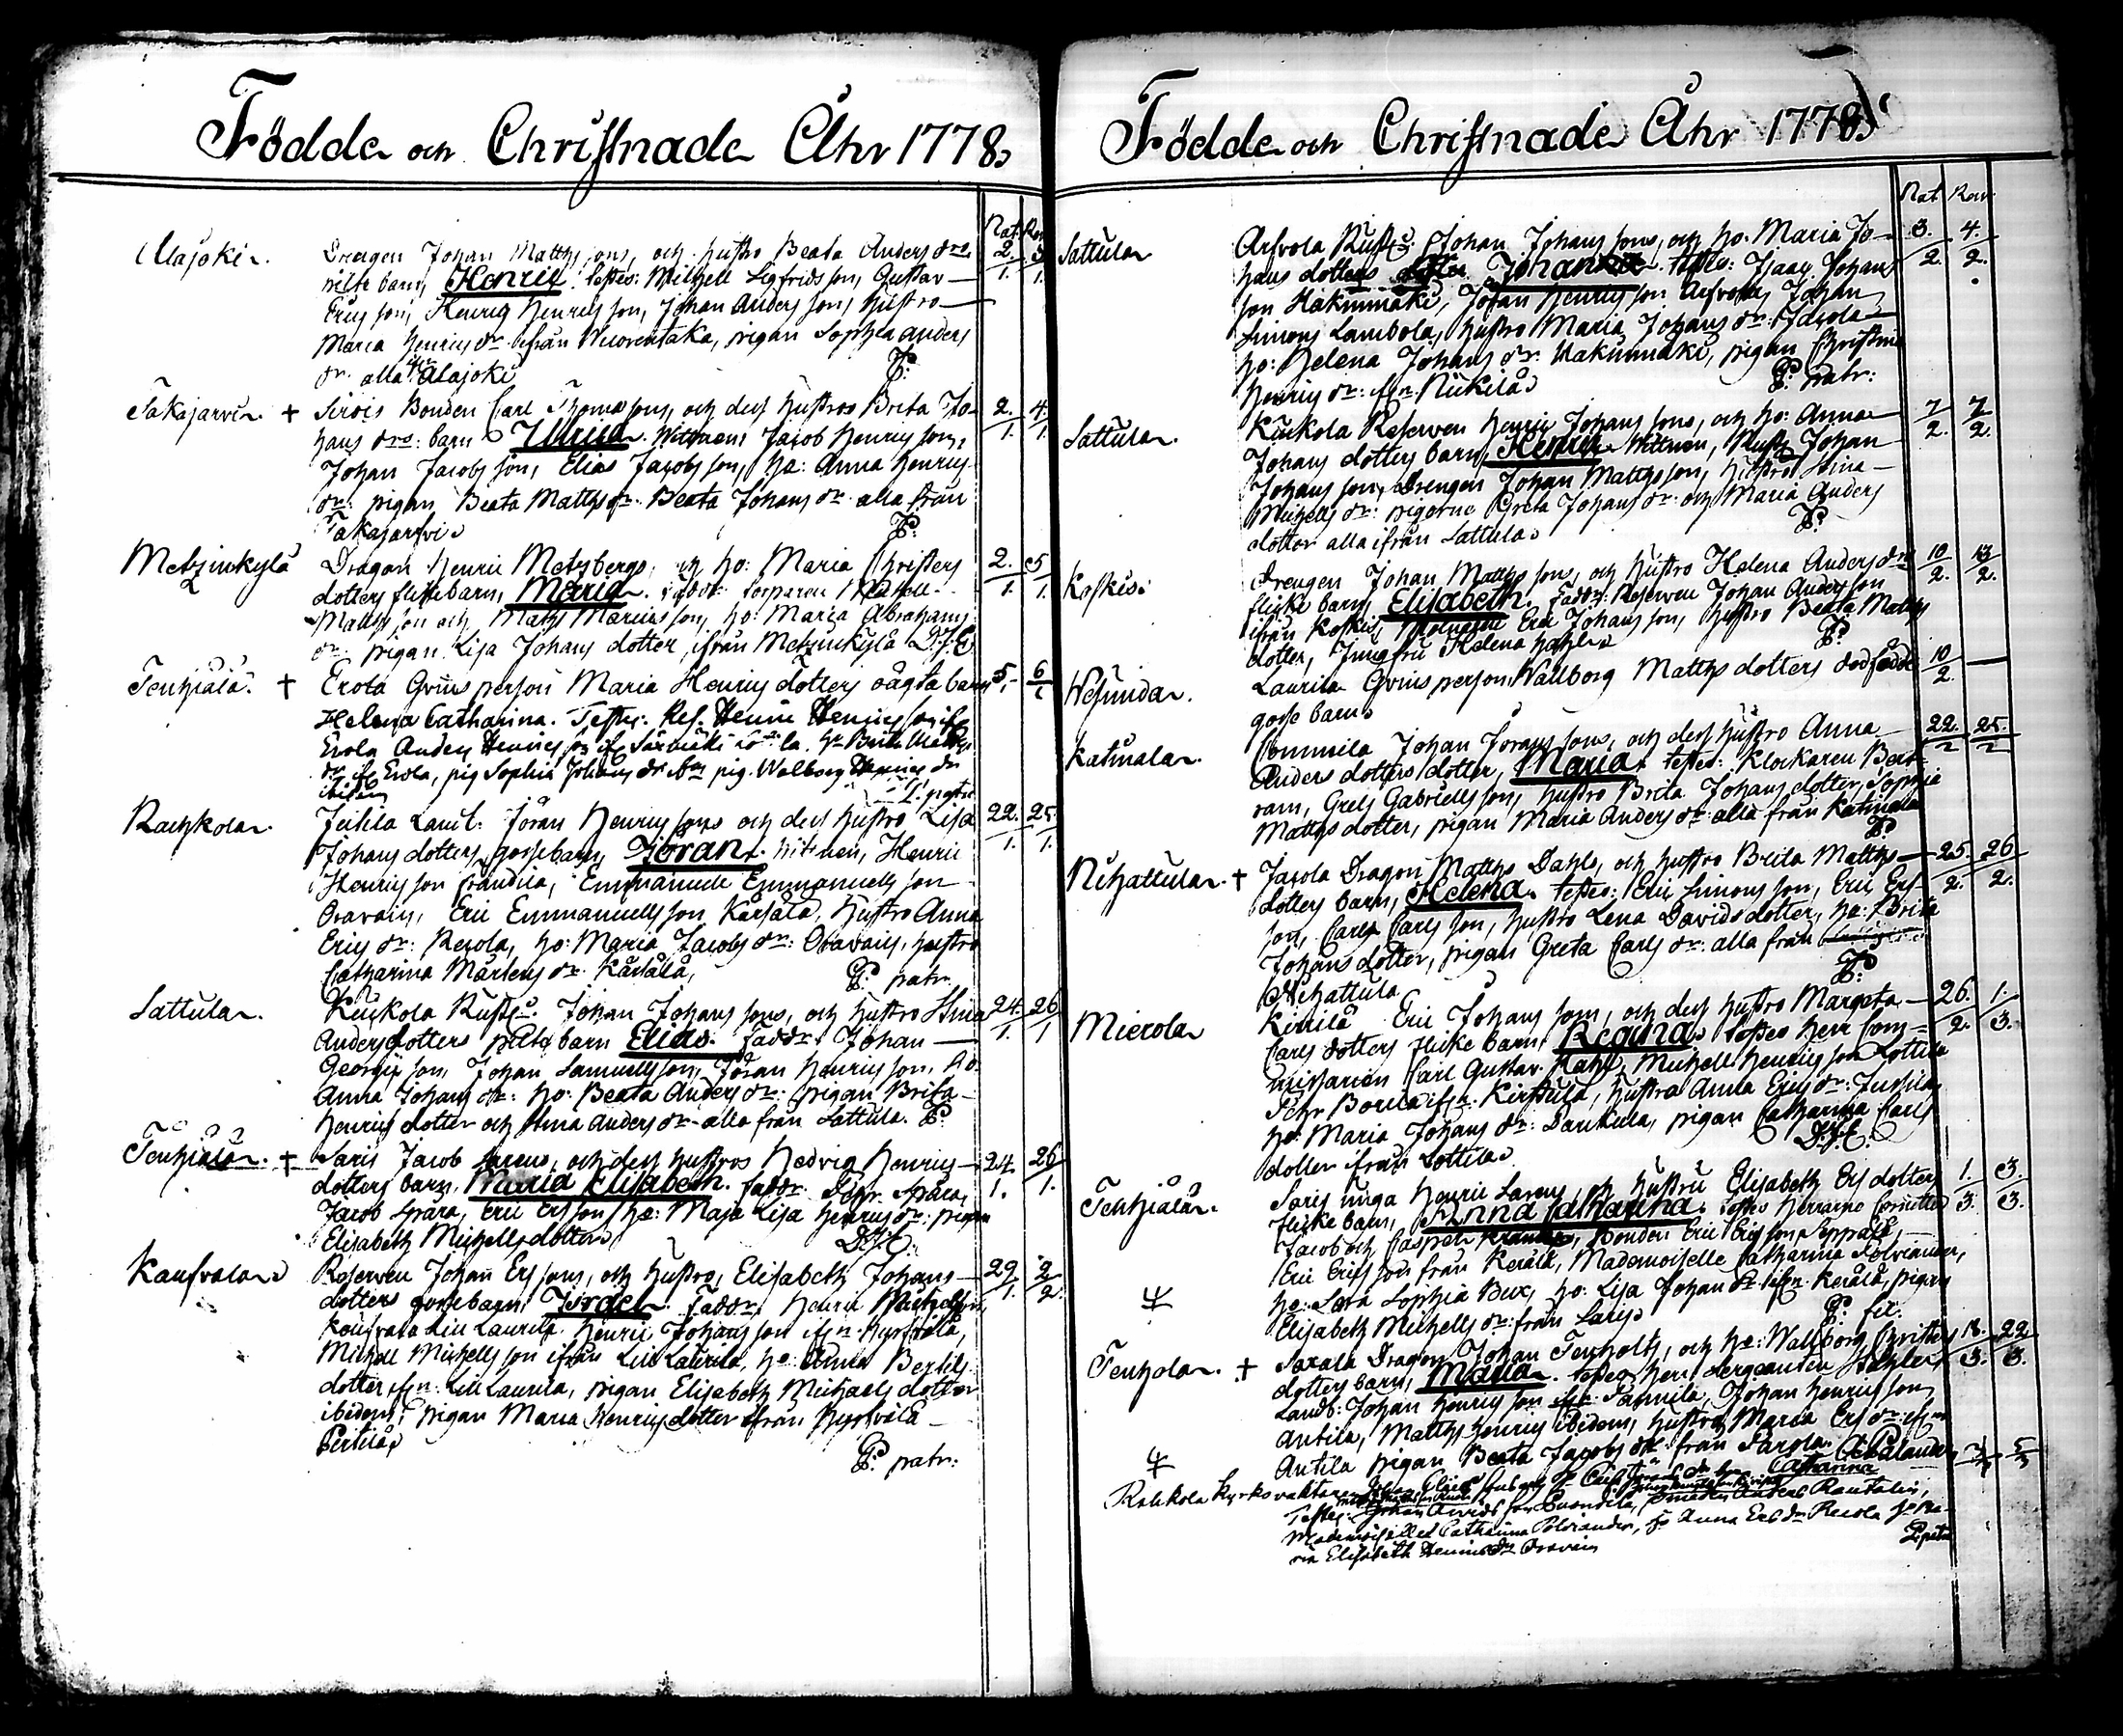 Födde och Christnade Åhr 1778.
Nat. Ren.
Alajoki. Drengen Johan Matths sons, och hustro Beata Anders drs 2./1. 3/1.
pilte barn, Henric testes: Michell Sigfrids son, Gustav
Erics son, Henric Henrics son, Johan Anders son, hustro
Maria Henrics dr. ifrån Wuorentaka, pigan Sophia Anders
dr. alla ifrn Alajoki P:
Takajarvi. + Sirois Bonden Carl Thomæ sons, och dess hustros Brita Jo- 2./1. 4./1.
hans drs: barn Ulrica. Wittnen: Jacob Henrics son,
Johan Jacobs son, Elias Jacobs son, ho: Anna Henrics
dr: pigan Beata Matths dr. Beata Johans dr. alla från
Takajarfvi. P:
Metzinkylä Dragon Henric Metzbergs, och ho: Maria Christers 2./1. 5/1.
dotters flicke barn, Maria. Faddr: Torparen Michell
Matths son och Maths Marcus son, ho: Maria Abrahams
dr. pigan Lisa Johans dotter, ifrån Metzinkylä D.J.C.
Tenhiälä. + Erola Gvins person Maria Henrics dotters oägta barn 5./1. 6/1.
Helena Catharina. Testes: Ref. Henric Henrics son ifr
Erola Anders Henrics son ifr Särmäki ho: Brita Matths
dr ifr Erola, pig Sophia Johans dr pig. Walborg Henrics dr
ibidem P. patr.
Rahkola. Jutila Landb: Jöran Henrics sons och dess hustro Lisa 22./1. 25./1.
Johans dotters gossebarn, Jöran. Witnen, Henric
Henrics son Prandila, Emmanuel Emmanuells son
Oravais, Eric Emmanuells son Kårsälä, hustro Anna
Erics dr: Rekola, ho: Maria Jacobs dr: Oravais, hustro
Catharina Mårtens dr. Kårsälä, P: patr.
Sattula. Kuckola Rusth. Johan Johans sons, och hustro Stina 24./1. 26/1
Anders dotters pilte barn Elias. Faddr: Johan
Georgii son, Johan Samuells son, Jöran Henrics son, ho
Anna Johans dr: ho: Beata Anders dr: pigan Brita
Henrics dotter och Anna Anders dr. alla från Sattula. P:
Tenhiälä. + Saris Jacob Larens, och dess hustros Hedvig Henrics 24./1. 26/1.
dotters barn, Maria Elisabeth. Faddr. Pehr Spåra,
Jacob Spåra, Eric Ers son, ho: Maja Lisa Henrics dr: pigan
Elisabeth Michells dotter D.J.C.
Kaufvola. Reserven Johan Ers sons, och hustro, Elisabeth Johans 29/1. 2/2.
dotters gossebarn, Israel. Faddr. Henric Michells son
Koufvola Lill Laurila. Henric Johans son ifrn Hyrfvälä,
Michell Michells son ifrån Lill Laurila, ho: Anna Bertils
dotter, ifrn: Lill Laurila, pigan Elisabeth Michaels dotter
ibidem, pigan Maria Henrics dotter ifrån Hyrfvälä
Pertilä P: patr:
Födde och Christnade Åhr 1778.
Nat. Ren
Sattula Arfvola Rusth. Johan Johans sons, och ho: Maria Jo- 3./2. 4./2.
hans dotters dotter Johanna. testes: Isaac Johans
son Hakumäki, Johan Henrics son Arfvola, Johan
Simons Lambola, hustro Maria Johans dr: Jacola
ho: Helena Johans dr: Hakumäki, pigan Christina
Henrics dr: ifrn: Nickilä. P: patr:
Sattula. Kuckola Reserven Henric Johans sons, och ho: Anna 7/2. 7/2.
Johans dotters barn, Henric. Wittnen, Rusth. Johan
Johans son, Drengen Johan Matths son, hustro Stina
Michells dr: pigorne Greta Johans dr: och Maria Anders
dotter alla ifrån Sattula. P:
Koskis. Drengen Johan Matths sons, och hustro Helena Anders drs 10/2. 13/2.
flicke barn, Elisabeth. Faddr: Reserven Johan Anders son
ifrån Koskis, Eric Johans son, hustro Beata Matths
dotter, Jungfru Helena Hahle. P:
Wesunda. Laurila Gvins person, Wallborg Matths dotters dödfödde 10/2. —
gosse barn.
Katinala. Commila Johan Jörans sons, och dess hustro Anna 22./2 25./2
Anders dotters dotter, Maria. testes: Klockaren Bert-
ram, Grels Gabriells son, hustro Brita Johans dotter, Sophia
Matths dotter, pigan Maria Anders dr alla från Katinala P:
Nihattula. + Jacola Dragon Matths Dahls, och hustro Brita Matths 25/2. 26/2.
dotters barn, Helena. testes: Eric Simons son, Eric Ers
son, Carl Carls son, hustro Lena Davids dotter, ho: Brita
Johans dotter, pigan Greta Carls dr: alla från
Nihattula P:
Mierola Kirrilä Eric Johans sons, och dess hustro Margeta 26./2. 1./3.
Carls dotters flicke barn, Regina. testes Herr Com-
missarien Carl Gustav Hahl, Michell Henrics son Lottila
Pehr Borila ifrn. Kirstula, hustro Anna Erics dr: Jussila
ho: Maria Johans dr: Dankula, pigan Catharina Carls
dotter ifrån Lottila. D.J.C.
Tenhiälä. Saris unga Henric Larens, och hustru Elisabeth Ers dotters 1./3. 3./3.
flicke barn, Anna Catharina. testes Herrarne Cornetter
Jacob och Casper, Bonden Eric Erics son Seppälä,
Eric Erics son från Kerälä, Mademoiselle Catharina Polviander,
ho: Sara Sophia Bux, ho: Lisa Johans dr. ifrn. Kerälä, pigan
Elisabeth Michells dr. från Saris. P: fil.
Tenhola. + Saxala Dragon Johan Tenholts, och ho: Wallborg Christers 18./3. 22/3.
dotters barn, Maria. testes Herr Sergeanten
Landb: Johan Henrics son Parmila, Johan Henrics son
Antila, Matths Henrics ibidem, hustro Maria Ers dr: ifrn
Antila pigan Beata Jacobs dr. från Parola.
Rahkola Kyrkovaktaren Johan Catharina
Testes: Johan Arvids son Prandila, Rautalin,
Mademoiselle Catharina Polviander, ho Anna Ers dr Recola, ho Ma-
ria Elisabeth Henrics dr Oravais P. patr